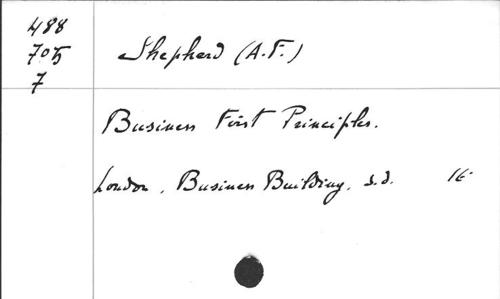 488
705
7
Shepherd (A.F.)
Business First Principles.
London, Business Building, s.d. 16